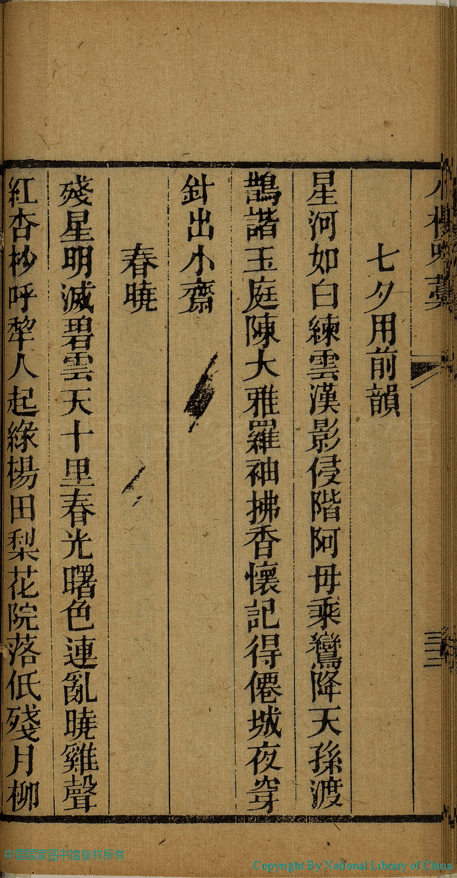 七夕用前韻
星河如白練雲漢影侵階阿母乘鸞降天孫渡
鵲諧玉庭陳大雅羅袖拂香懷記得僊城夜穿
針出小齋
春曉
殘星明滅碧雲天十里春光曙色連亂曉雞聲
紅杏杪呼犂人起綠楊田梨花院落低殘月柳
Copyright By National Library of China